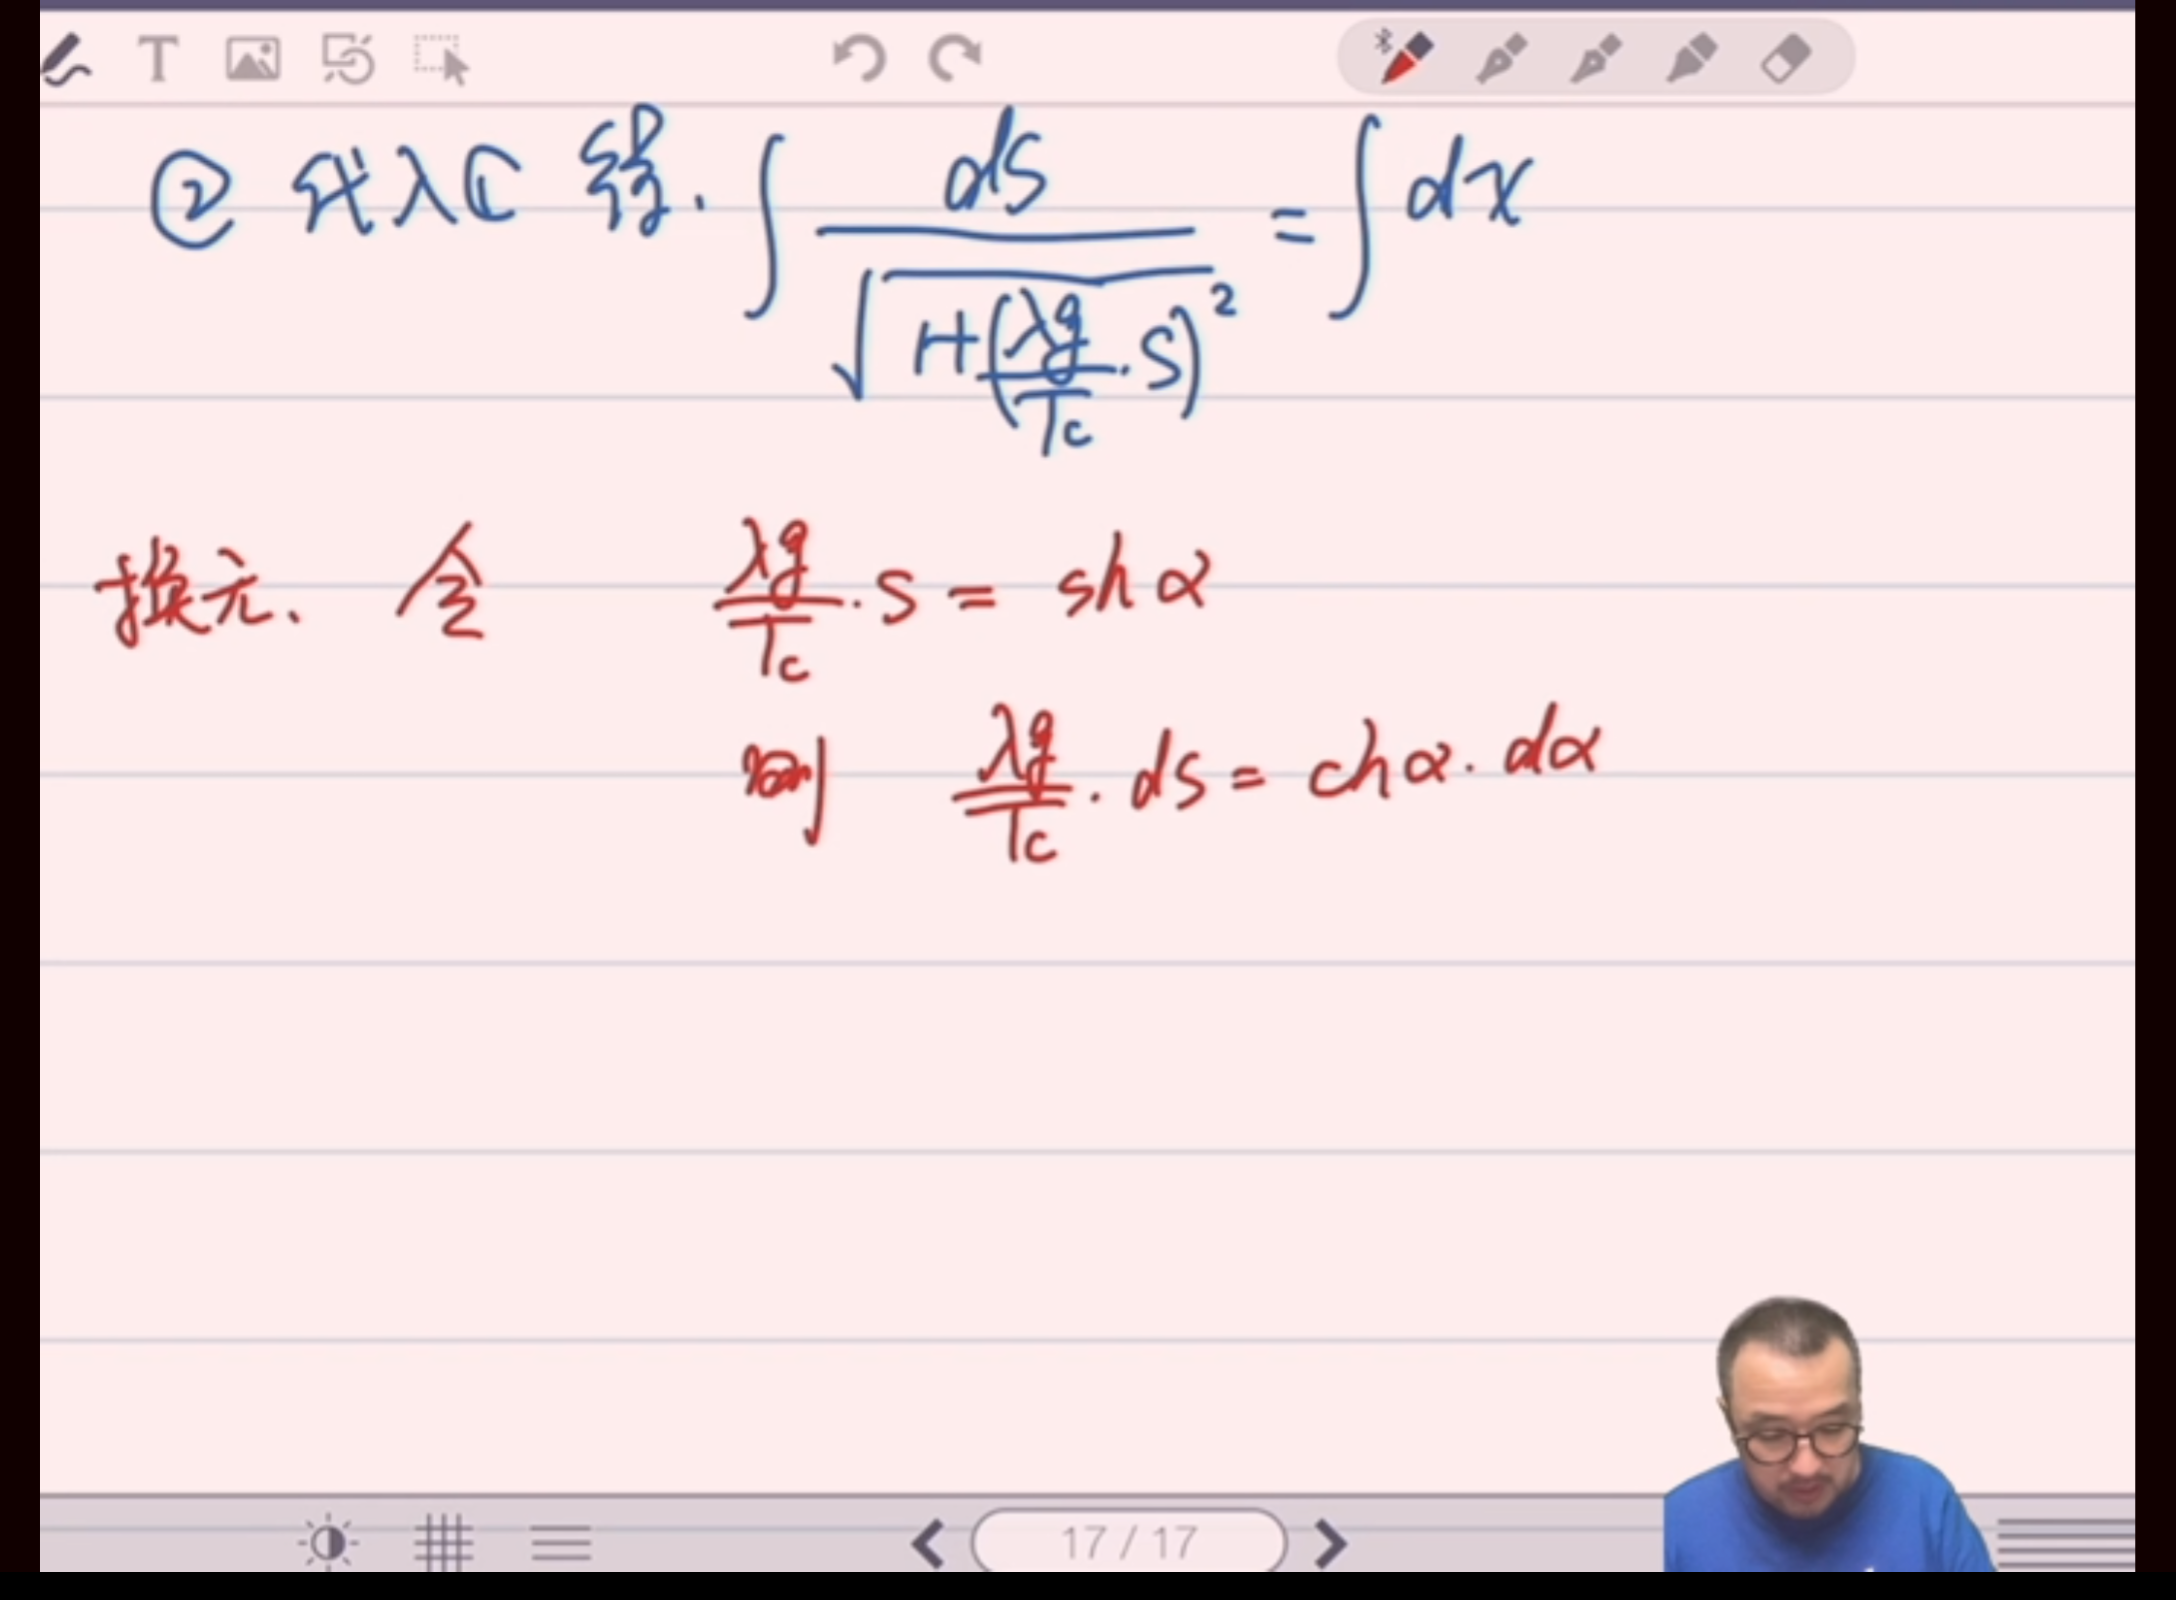 ② 代入C 得. ∫ ds / √(1+(λg/Tc · s)²) = ∫ dx
换元、令 λg/Tc · s = sh α
则 λg/Tc · ds = ch α · dα
17 / 17